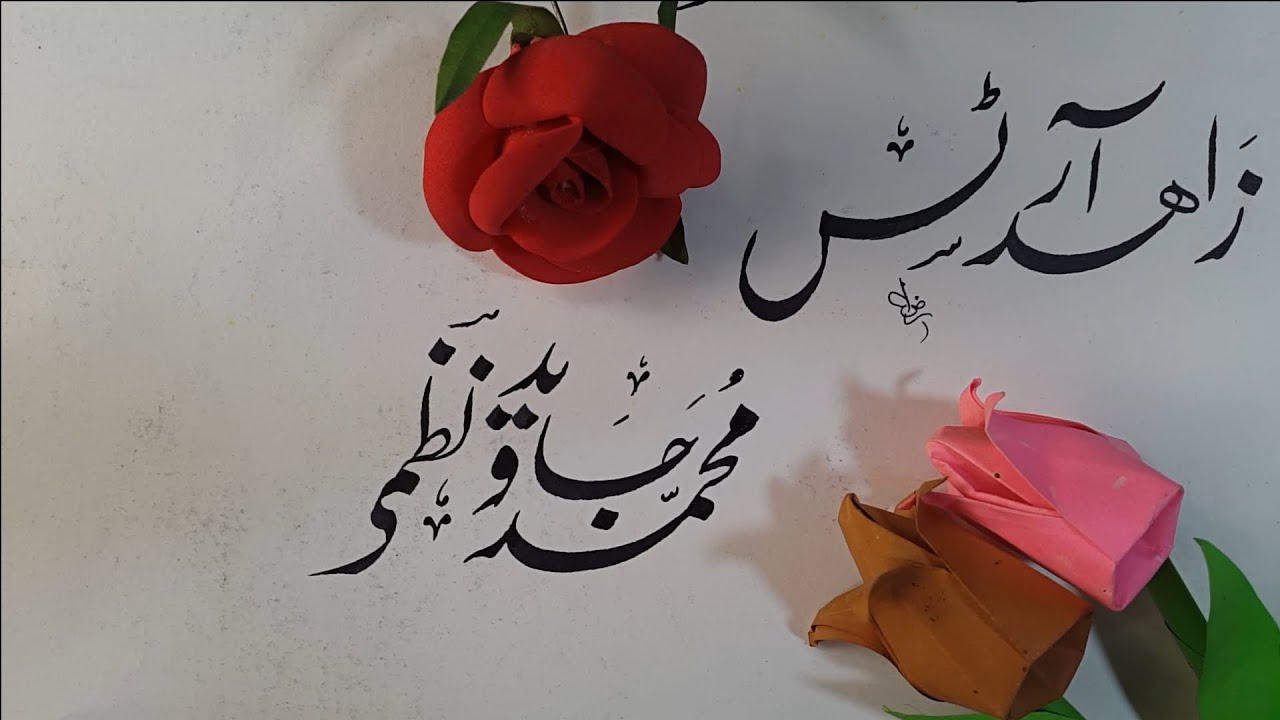 زَاہد آرٹس
مُحَمّد جَاوید نَظمی